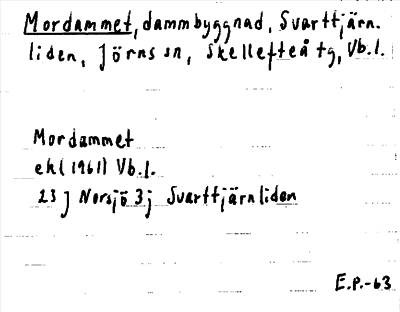 Mordammet, dammbyggnad, Svarttjärn.
liden, Jörns sn, Skellefteå tg, Vb.l.
Mordammet
ek (1961) Vb.l.
23 J Norsjö 3j Svarttjärnliden
E.P.-63